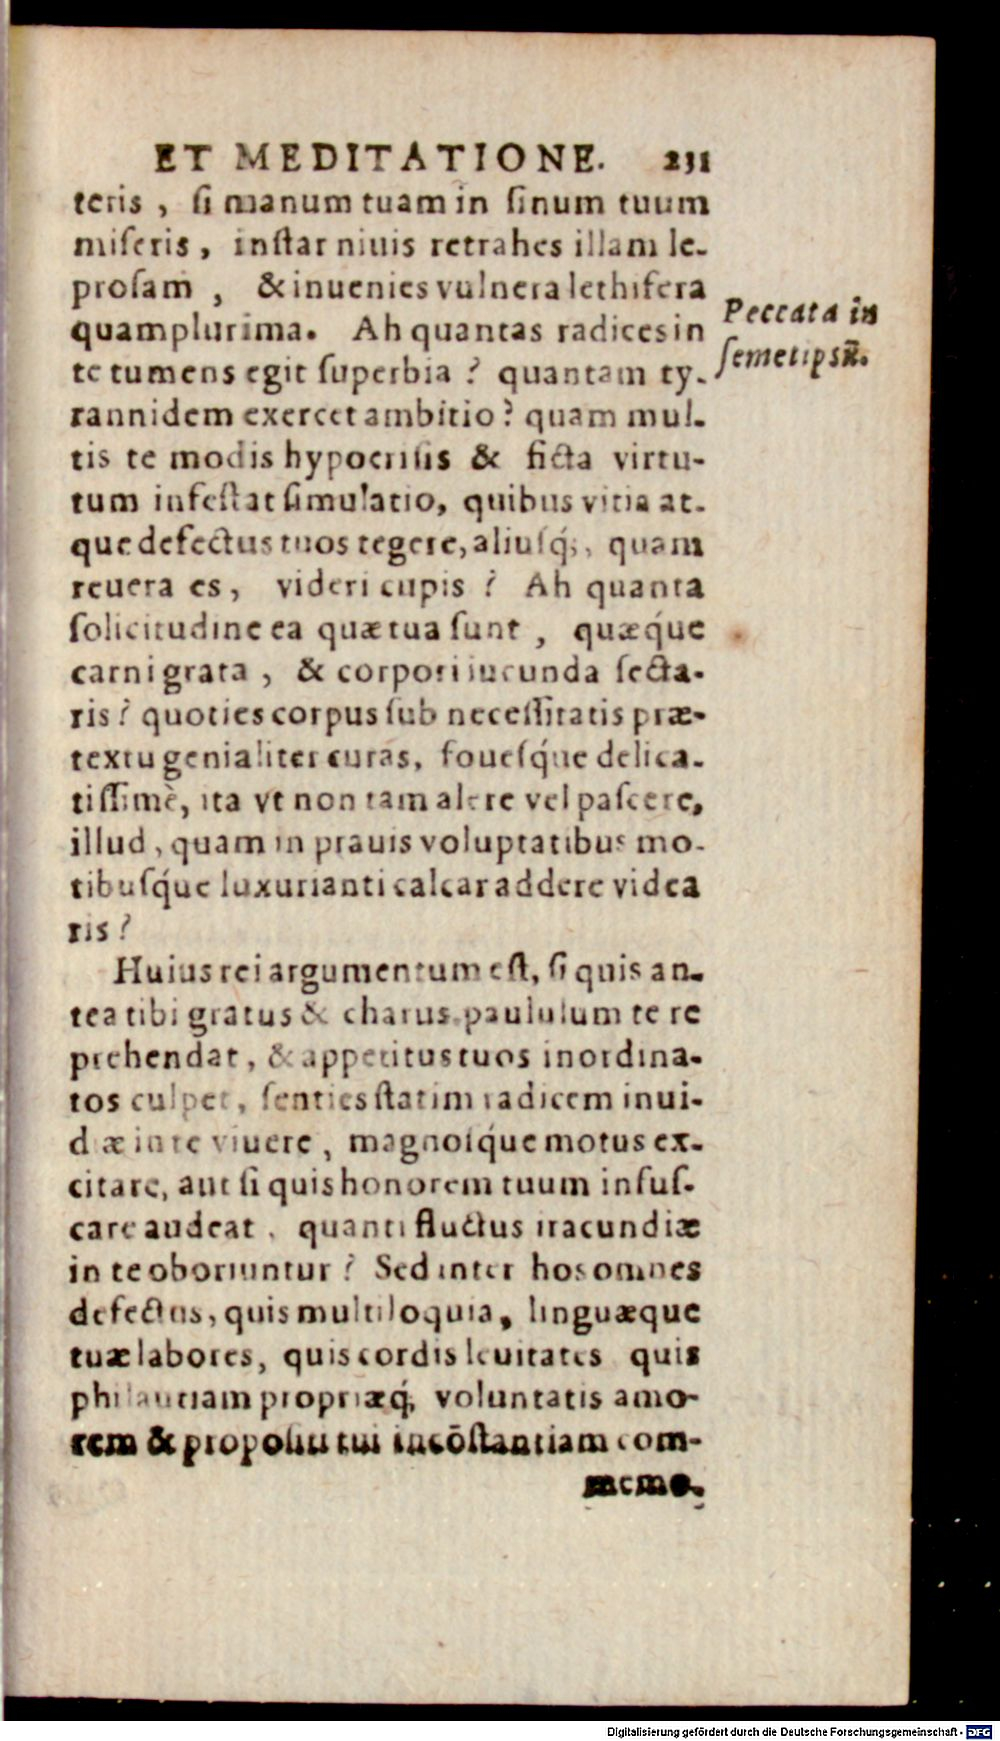 ET MEDITATIONE. 231
teris, ſi manum tuam in ſinum tuum
miſeris, inſtar niuis retrahes illam le-
proſam, & inuenies vulnera lethifera
quamplurima. Ah quantas radices in
te tumens egit ſuperbia? quantam ty-
rannidem exercet ambitio? quam mul-
tis te modis hypocriſis & ficta virtu-
tum infeſtat ſimulatio, quibus vitia at-
que defectus tuos tegere, aliuſq́;, quam
reuera es, videri cupis? Ah quanta
ſolicitudine ea quæ tua ſunt, quæq́ue
carni grata, & corpori iucunda ſecta-
ris? quoties corpus ſub neceſſitatis præ-
textu genialiter curas, foueſq́ue delica-
tiſſimè, ita vt non tam alere vel paſcere,
illud, quam in prauis voluptatibus mo-
tibuſq́ue luxurianti calcar addere videa
ris?
Huius rei argumentum eſt, ſi quis an-
tea tibi gratus & charus paululum te re
prehendat, & appetitus tuos inordina-
tos culpet, ſenties ſtatim radicem inui-
diæ in te viuere, magnoſq́ue motus ex-
citare, aut ſi quis honorem tuum infuſ-
care audeat, quanti fluctus iracundiæ
in te oboriuntur? Sed inter hos omnes
defectus, quis multiloquia, linguæque
tuæ labores, quis cordis leuitates quis
philautiam propriæq́; voluntatis amo-
rem & propoſiti tui incōſtantiam com-
memo-
Peccata in
ſemetipſū.
Digitalisierung gefördert durch die Deutsche Forschungsgemeinschaft - DFG